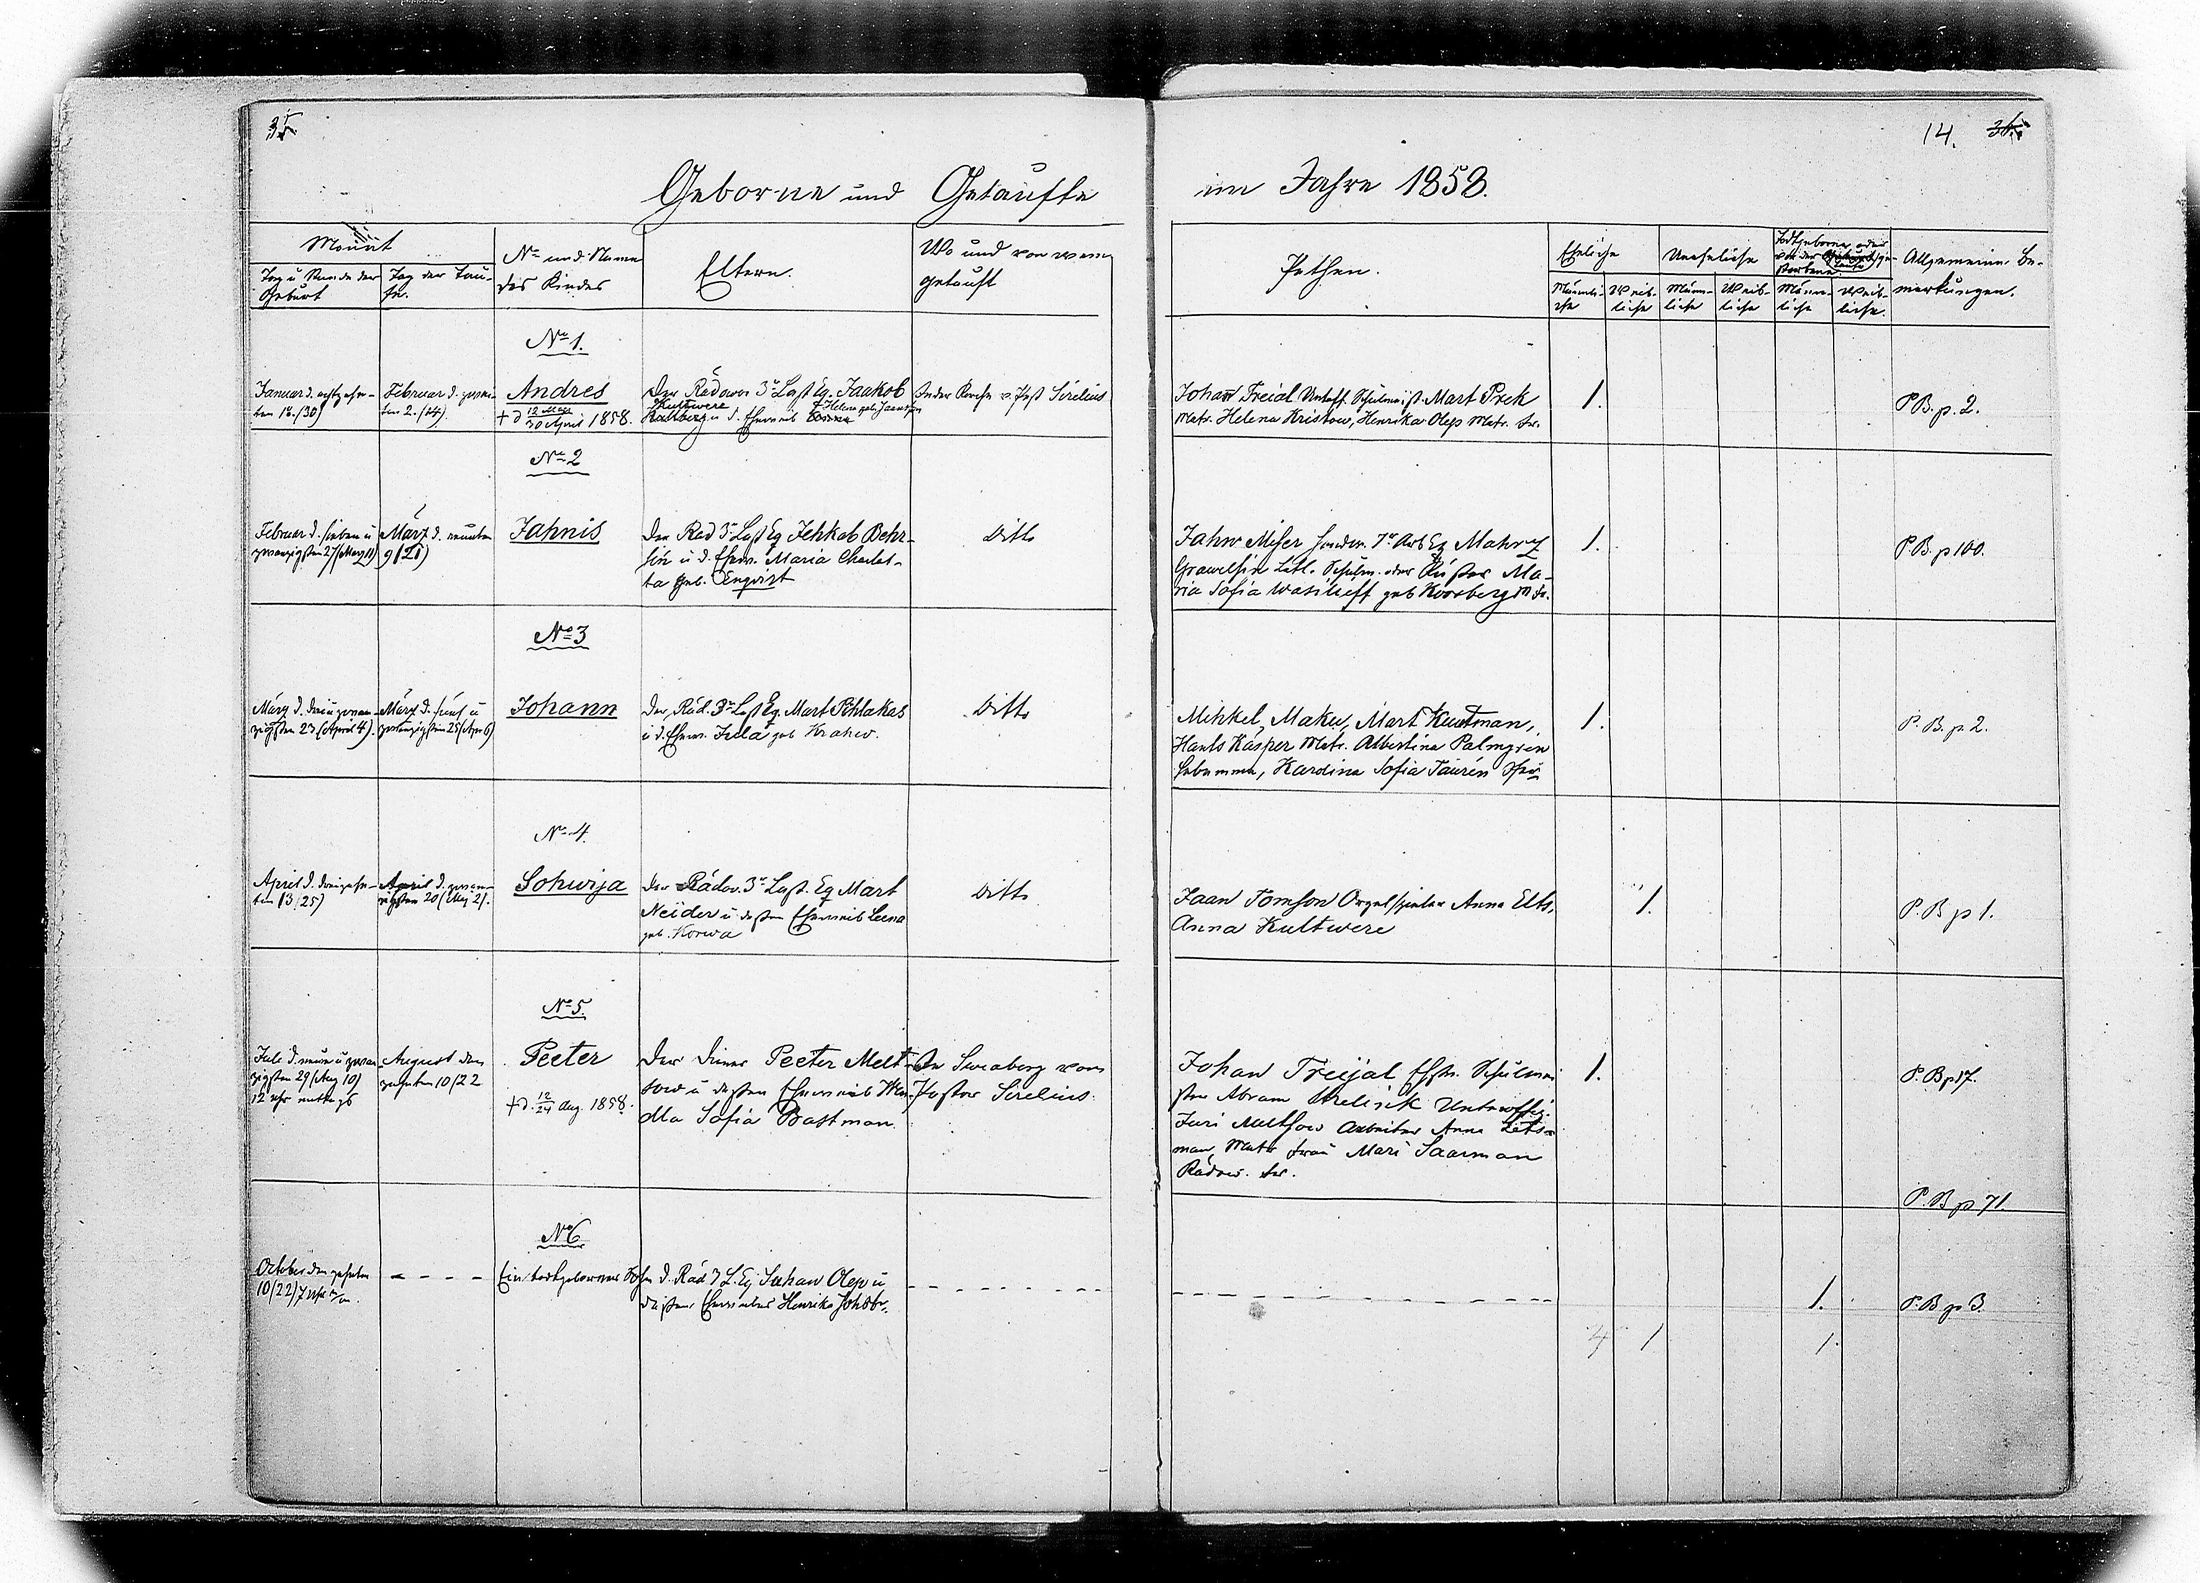 35
14. 36.
Geborne und Getaufte
im Jahre 1858.
Monat
Tag u Stunde der Geburt
Tag der Taufe.
No und Name des Kindes
Eltern.
Wo und von wem getauft
Pathen.
Eheliche
Männliche
Weibliche
Uneheliche
Männliche
Weibliche
Todtgeborne oder vor der Taufe gestorbene
Männliche
Weibliche.
Allgemeine Bemerkungen.
No 1.
Januar d. achtzehnten 18./30)
Februar d. zweiten 2. /14).
Andres
† d 12 May
30 April 1858.
Der Ládowoi 3r Last Eq. Jaakob
Kultwere Helena geb.
u d. Eheweib
In der Kirche v. Past Sirelius
Johan Treial Untoff. Schulmeist. Mart Prek
Matr. Helena Kristow, Henrika Olep Matr. Fr.
1.
P B. p. 2.
No 2
Februar d. sieben u
zwanzigsten 27 (März 11)
März d. neunten
9 (21)
Jahnis
Der Räd 3r Last Eq Jehkab Behr-
sin u d. Ehew. Maria Charlot-
ta geb. Enqvist
Ditto
Jahn Miser 7r Arb Eq Mahrz
Grawelsin Letl. Schulm. oder Küster Ma-
ria Sofia Wasilieff geb Koorberg M Fr.
1.
P. B. p 100.
No 3
März d. dreiundzwan-
zigsten 23 (April 4).
März d. fünf u
zwanzigsten 25 (Apr 6)
Johann
Der Räd. 3r Last Eq. Mart Pihlakas
u d. Ehew. Jula geb Krahw.
Ditto
Mihkel Maku, Mart Kuutman,
Hants Kásper Matr. Albertina Palmgren
Hebamme, Karolina Sofia Taurén
1.
P. B. p. 2.
No 4.
April d. dreizehn-
ten 13 /25)
April d. zwan-
zigsten 20 (May 2).
Sohwija
Der Rádow. 3r Last. Eq Mart
Neider u dessen Eheweib Leena
geb. Korwa
Ditto
Jaan Tomson Orgelspieler Anna Elts,
Anna Kultwere
1.
P. B p 1.
No 5.
Juli d. neun u zwan
zigsten 29 (Aug 10)
12 Uhr mittags
August den
zehnten 10/22
Peeter
† d. 12
24 Aug. 1858.
Der Diener Peeter Melt-
sow u dessen Eheweib We-
lla Sofia Bastman.
In Sweaborg vom
Pastor Sirelius.
Johan Treijal Ehstn. Schulmei
ster Abram Strelisik Unteroffiz.
Juri Meltsow Arbeiter Anna Lets-
man, Matr Frau Mari Saarman
Rädow. Fr.
1.
P. B p 17.
P. B p 71.
No 6
October den zehnten
10 (22) 7 Uhr
- - - -
Ein todtgeborener Sohn
d. Räd 3 L. Eq Juhan Olep u
dessen Eheweibes Henrika
- - - - - - - -
- - - - - - - - - - - -
1.
P. B p 3.
4 1 1.